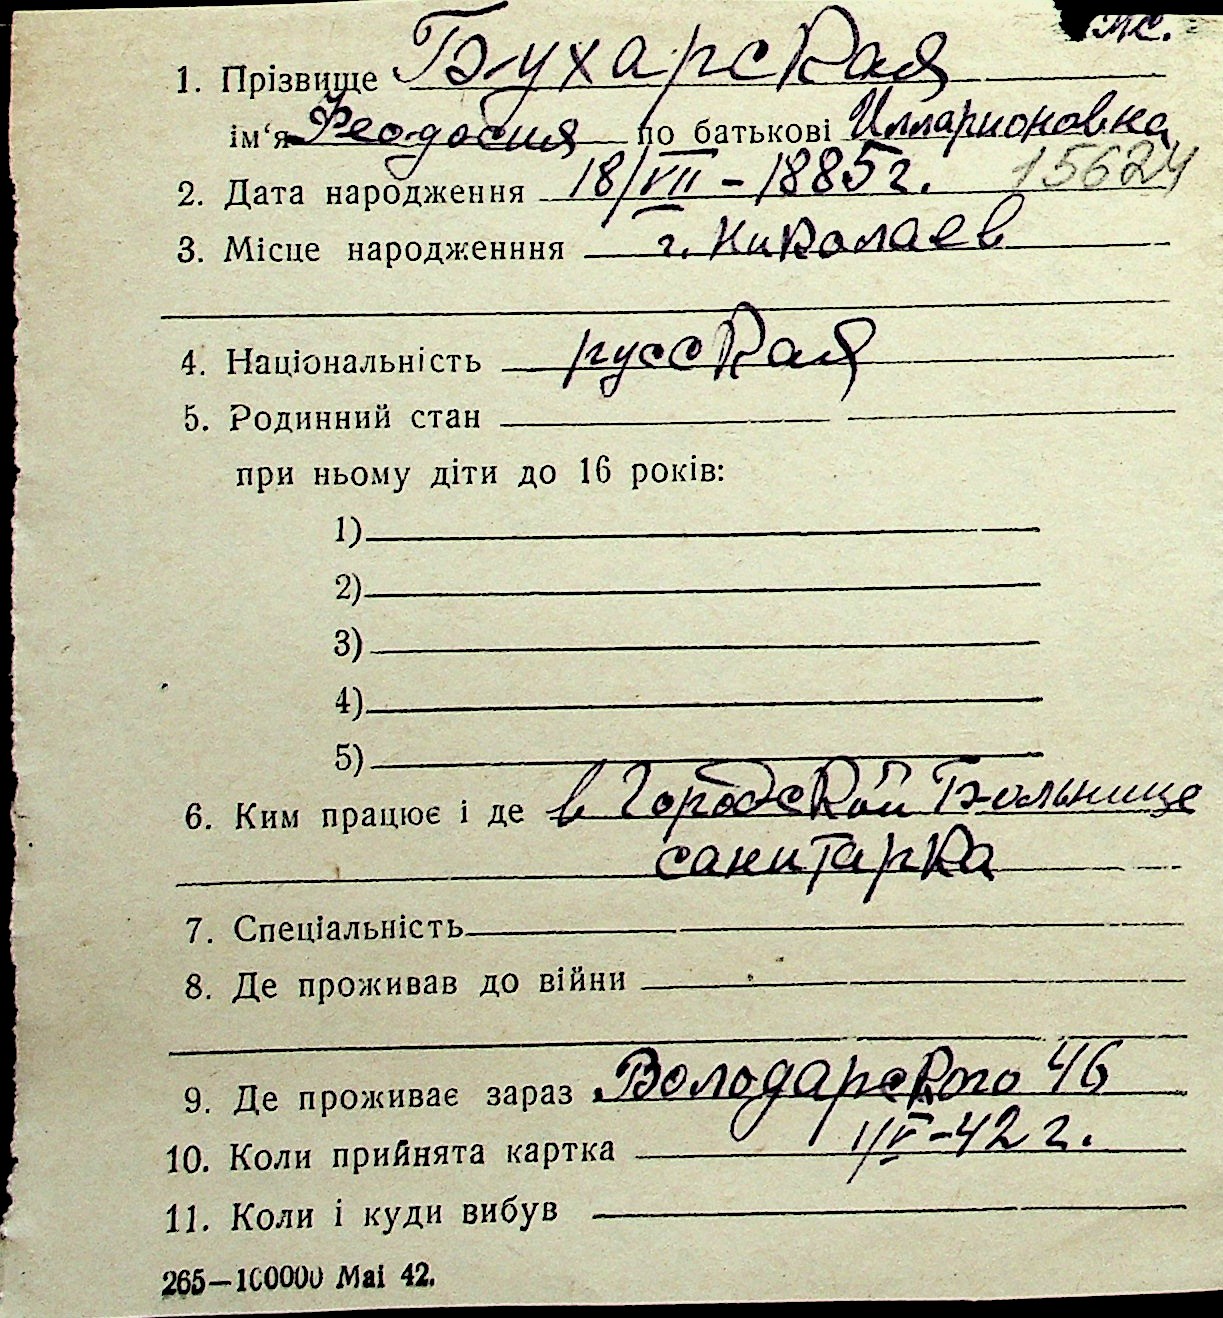 1. Прізвище Бухарская
ім‘я Феодосия по батькові Илларионовна
2. Дата народження 18/VII – 1885 г. 15624
3. Місце народженння г. Николаев
4. Національність русская
5. Родинний стан
при ньому діти до 16 років:
1)
2)
3)
4)
5)
6. Ким працює і де в Городской Больнице
санитарка
7. Спеціальність
8. Де проживав до війни
9. Де проживає зараз Володарского 46
10. Коли прийнята картка 1/V–42 г.
11. Коли і куди вибув
265—100000 Mai 42.